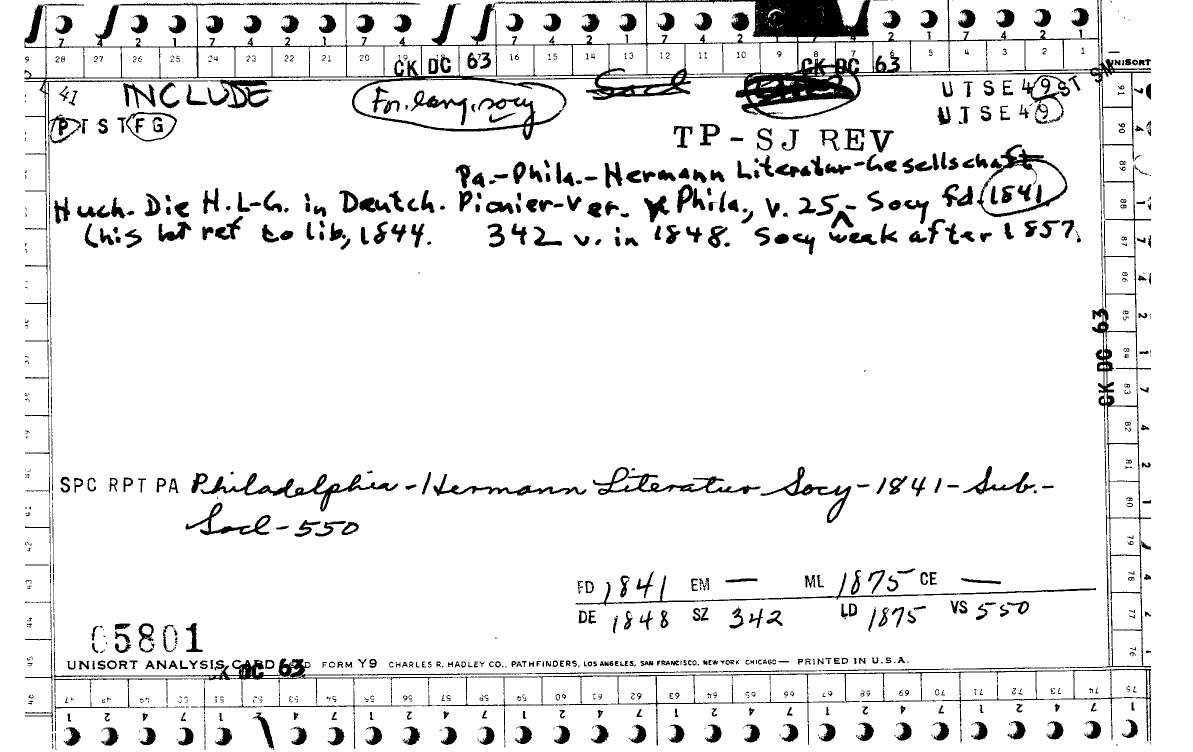 7 4 2 1 7 4 2 1 7 4 2 1 7 4 2 1 7 4 2 7 4 2 1 7 4 2 1
28 27 26 25 24 23 22 21 20 16 15 14 13 12 11 10 9 8 7 6 5 4 3 2 1
CK DC 63 CK DC 63 UNISORT
41 INCLUDE Fn. lang. socy Socl UTSE49ST
PTSTFG UTSE49
TP-SJ REV
Pa.-Phila.-Hermann Literatur-Gesellschaft
Huch. Die H.L-G. in Deutch. Pionier-Ver. Phila., v. 25 - Socy fd. 1841
(his 1st ref to lib, 1844. 342 v. in 1848. Socy weak after 1857.
CK DC 63
SPC RPT PA Philadelphia - Hermann Literatur Socy - 1841 - Sub. -
Socl - 550
FD 1841 EM — ML 1875 CE —
DE 1848 SZ 342 LD 1875 VS 550
05801
UNISORT ANALYSIS CARD FORM Y9 CHARLES R. HADLEY CO., PATHFINDERS, LOS ANGELES, SAN FRANCISCO, NEW YORK CHICAGO — PRINTED IN U.S.A.
CK DC 63
47 48 49 50 51 52 53 54 55 56 57 58 59 60 61 62 63 64 65 66 67 68 69 70 71 72 73 74 75